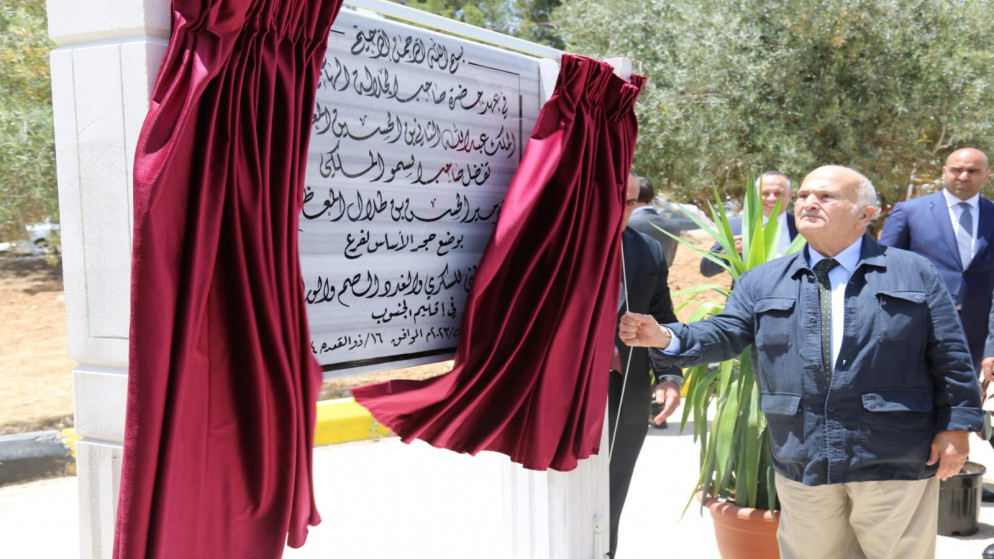 بسم الله الرحمن الرحيم
في عهد حضرة صاحب الجلالة
الملك عبدالله الثاني بن الحسين
تفضل صاحب السمو الملكي
الحسن بن طلال المعظم
بوضع حجر الأساس لفرع
للسكري والغدد الصم
في إقليم الجنوب
الموافق ١٦/ذوالقعدة